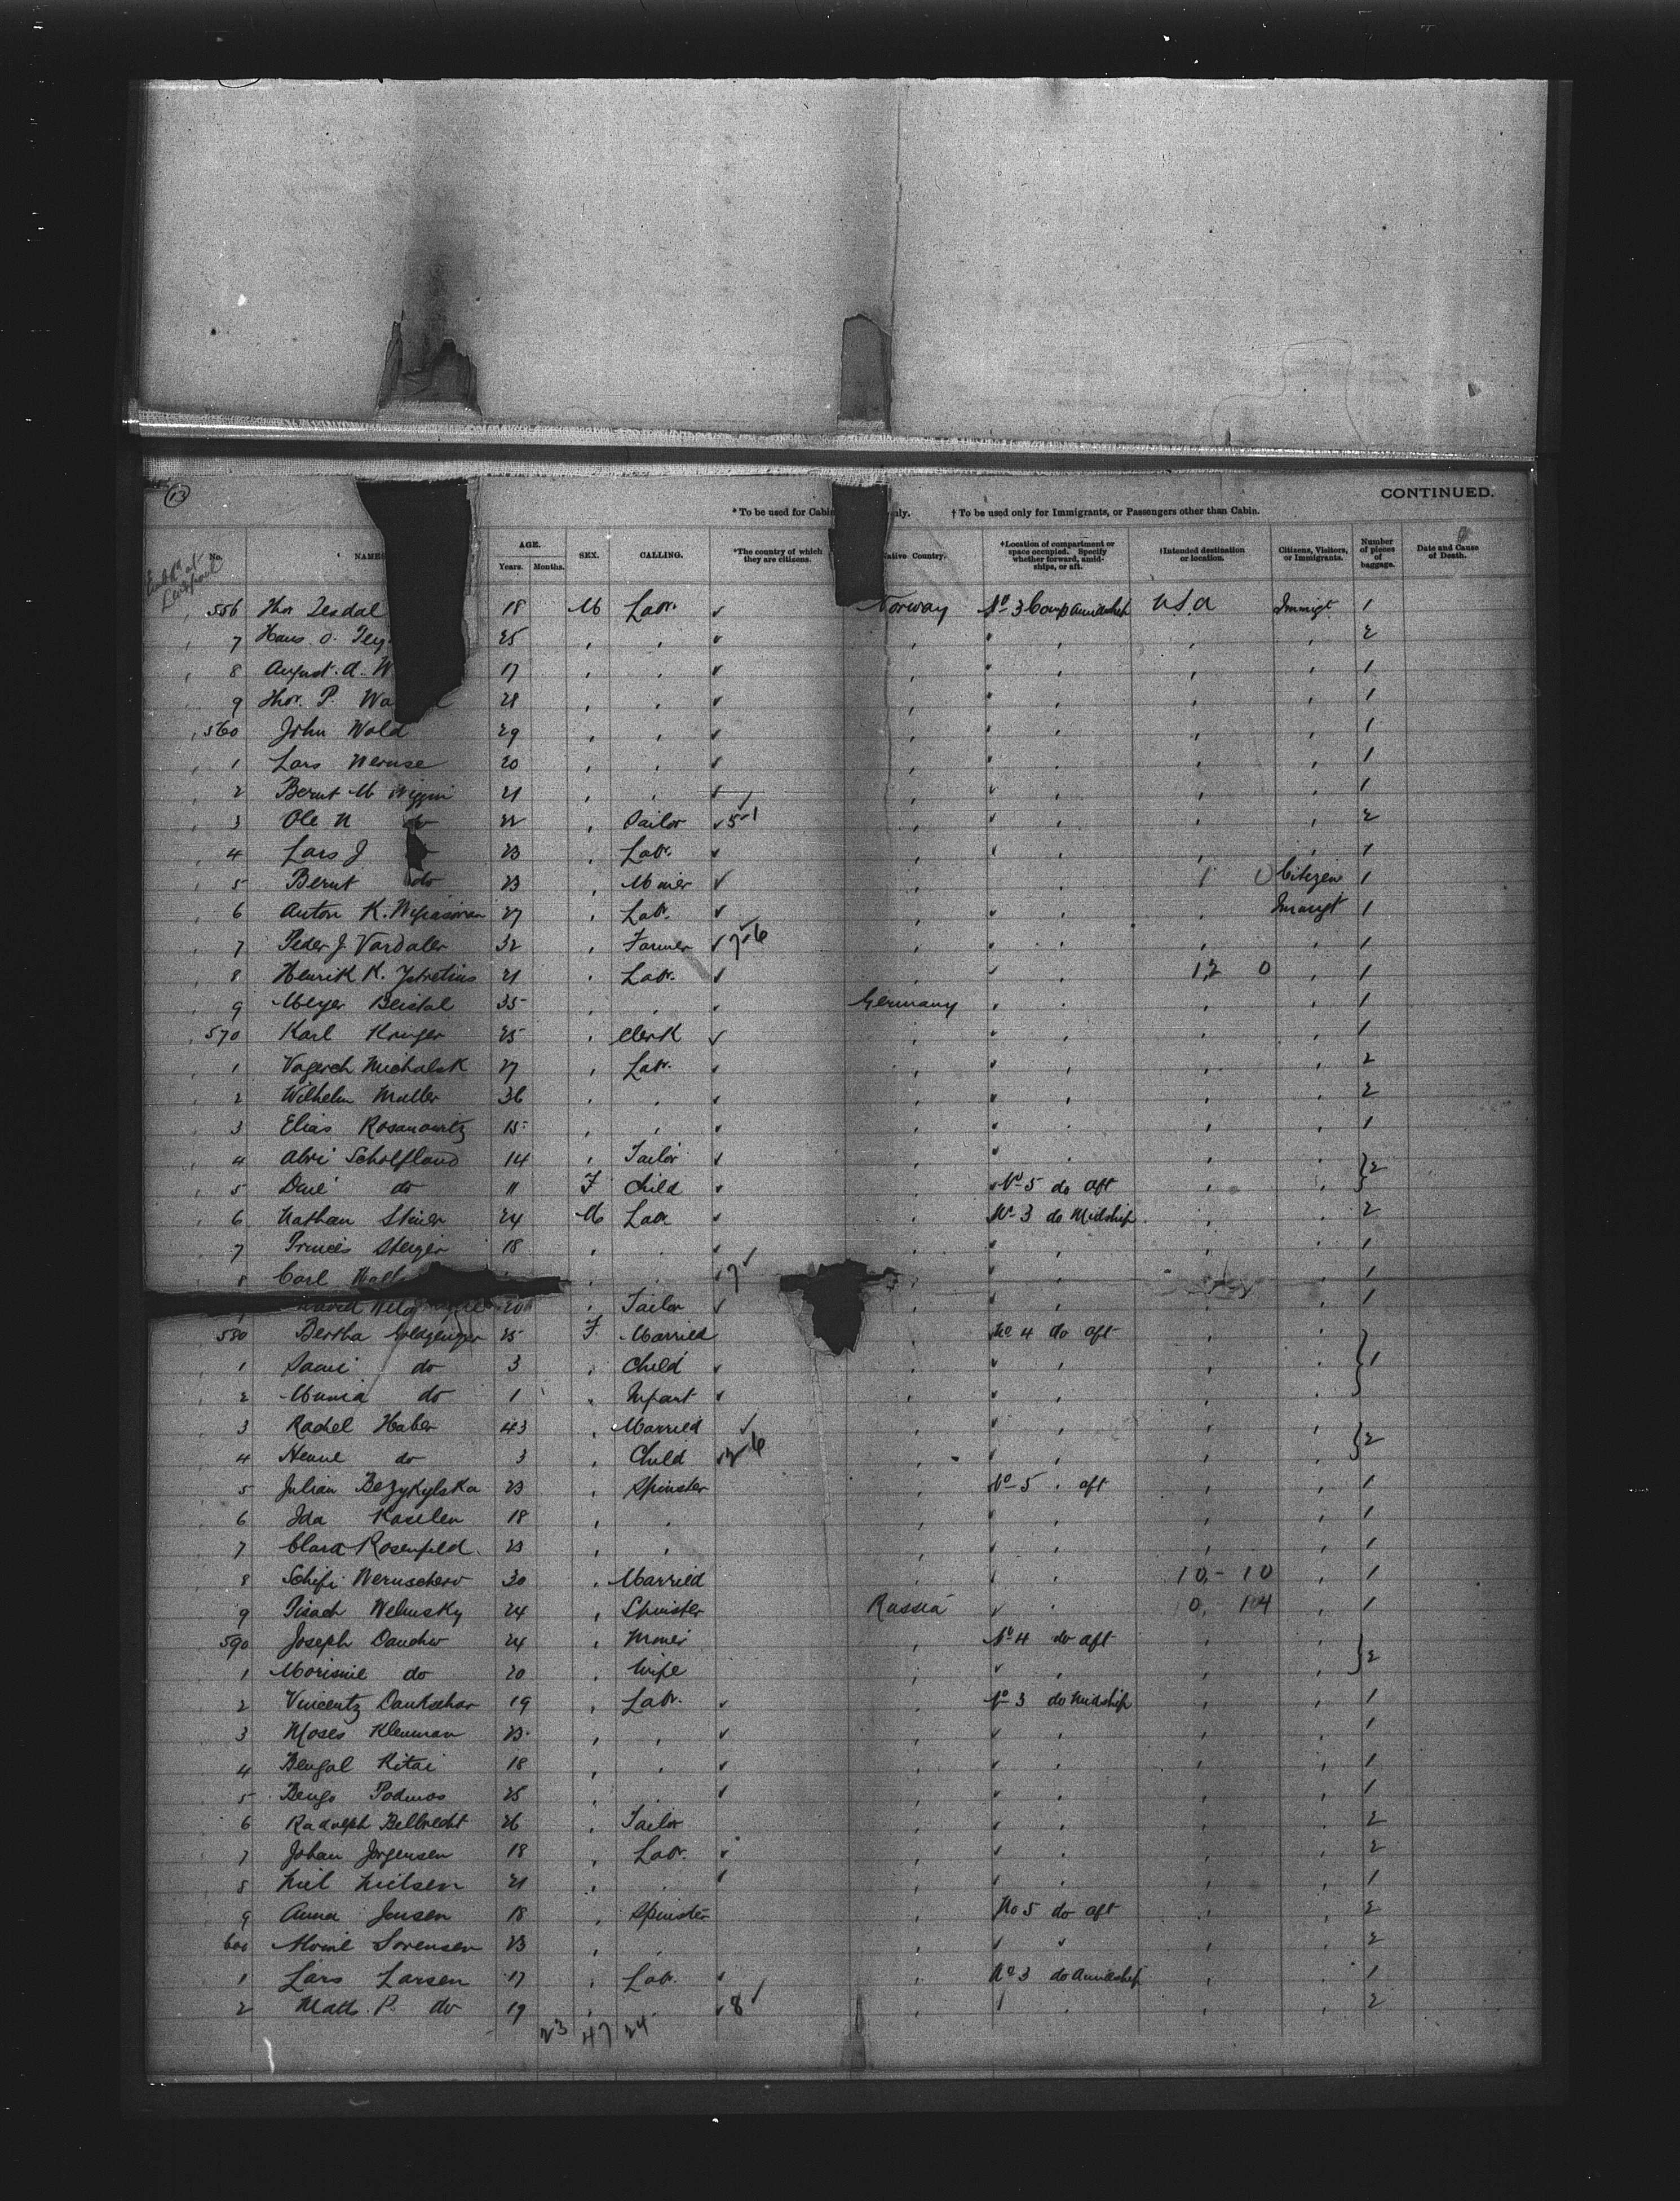 13
CONTINUED.
* To be used for Cabin only. † To be used only for Immigrants, or Passengers other than Cabin.
Embkd at Liverpool
No. NAMES AGE. Years. Months. SEX. CALLING. *The country of which they are citizens. Native Country. †Location of compartment or space occupied. Specify whether forward, amidships, or aft. †Intended destination or location. Citizens, Visitors, or Immigrants. Number of pieces of baggage. Date and Cause of Death.
556 Thor 18 M Labr. Norway No 3 Comp Amidship U.S.A Immigt 1
7 Hans O. 25 2
8 August. A. W 17 1
9 Thor. P. Wa 28 1
560 John Wold 29 1
1 Lars 20 1
2 Bernt M 21 1
3 Ole N do 22 Sailor 5-1 2
4 Lars J 23 Labr. 1
5 Bernt do 23 Miner 1 0 Citizen 1
6 Anton K. 27 Labr. Immigt 1
7 Peder J. Vardaler 32 Farmer 7-6 1
8 Henrik K. 21 Labr. 12 0 1
9 Meyer 35 Germany 1
570 Karl Kruger 25 Clerk 1
1 Michalak 27 Labr. 2
2 Wilhelm Muller 36 2
3 Elias Rosanowitz 15 1
4 Abri Scholfland 14 Tailor } 2
5 do 11 F Child No 5 do aft
6 Nathan Steiner 24 M Labr No 3 do Midship 2
7 18 1
8 Carl 7 1
David 20 Tailor 1
580 Bertha 25 F Married No 4 do aft
1 do 3 Child } 1
2 do 1 Infant
3 Rachel Haber 43 Married } 2
4 do 3 Child 2-6
5 Julian Bezykylska 23 Spinster No 5 aft 1
6 Ida Kaselen 18 1
7 Clara Rosenfeld 23 1
8 Schifi 30 Married 10 - 10 1
9 24 Spinster Russia 0, 14 1
590 Joseph 24 Miner No 4 do aft } 2
1 do 20 Wife
2 Vincentz 19 Labr. No 3 do Midship 1
3 Moses Kleinman 23 1
4 Bengal Kitai 18 1
5 Bengs Podmos 25 1
6 Radolph 26 Tailor 2
7 Johan Jorgensen 18 Labr. 2
8 Niel Nielsen 21 1
9 Anna Jensen 18 Spinster No 5 do aft 2
600 Sorensen 23 2
1 Lars Larsen 17 Labr. No 3 do Amidship 1
2 Matts. P. do 19 8 2
23 47 24